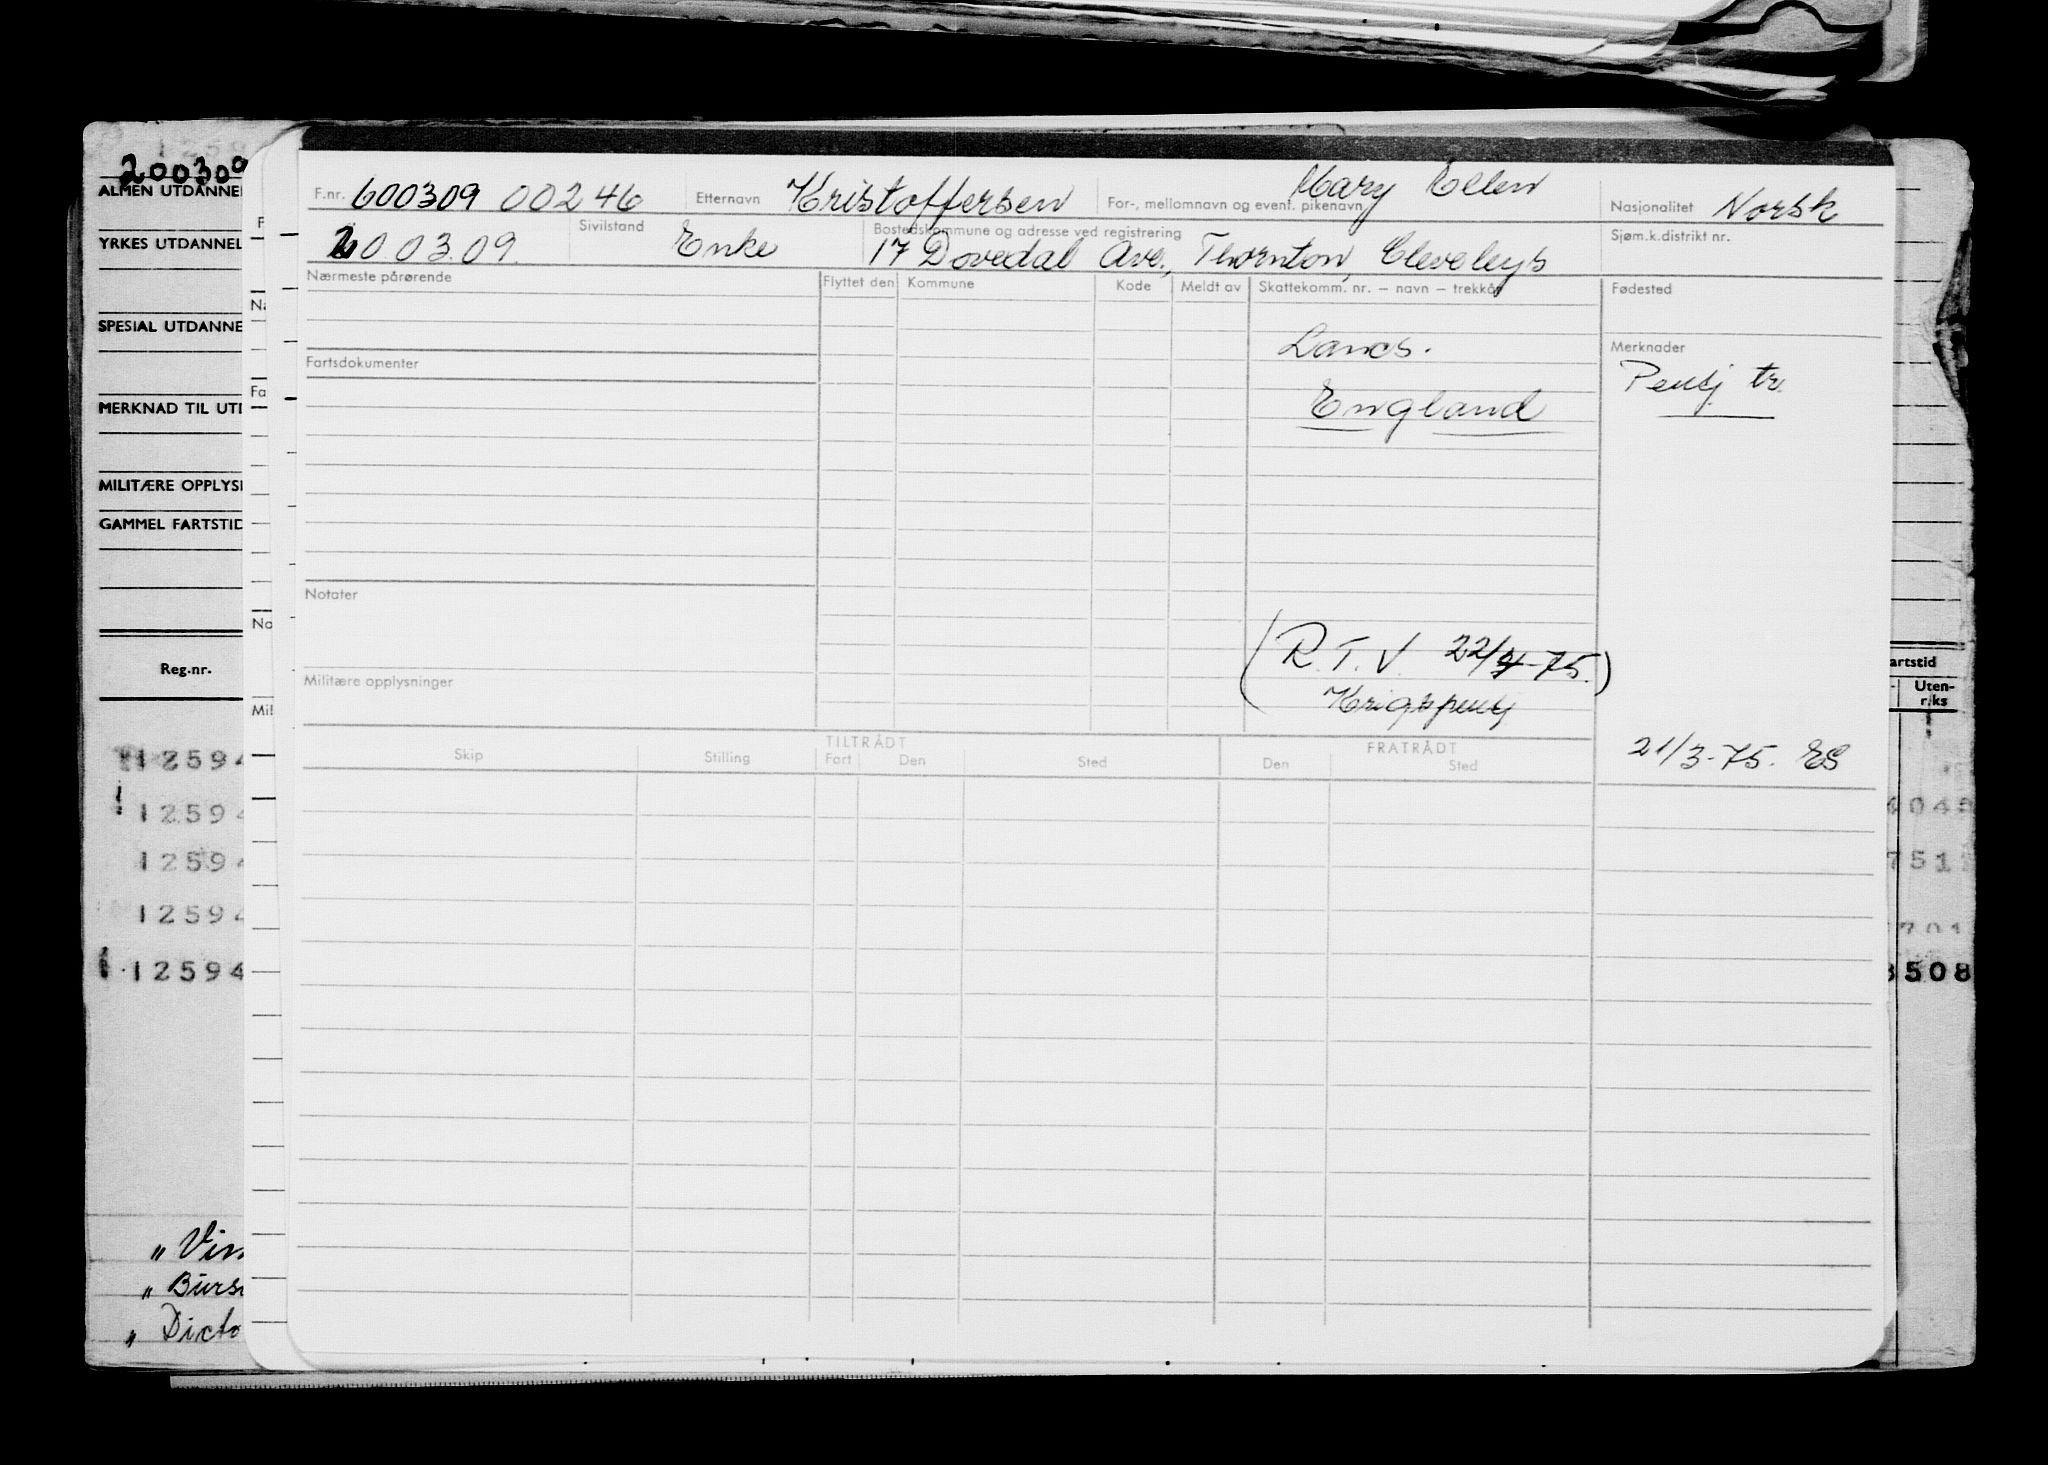 200309
ALMEN UTDANNEL
YRKES UTDANNEL
SPESIAL UTDANNE
MERKNAD TIL UTD
MILITÆRE OPPLYS
GAMMEL FARTSTID
Reg.nr.
12594
12594
12594
12594
12594
„ Vin
„ Burs
„ Dicto
F
Na
Fa
No
Mil
F.nr. 600309 00246 Etternavn Kristoffersen For-, mellomnavn og event. pikenavn Mary Ellen Nasjonalitet Norsk
200309. Sivilstand Enke Bostedskommune og adresse ved registrering 17 Dovedal Ave., Thornton, Cleveleys Sjøm.k.distrikt nr.
Nærmeste pårørende Flyttet den Kommune Kode Meldt av Skattekomm. nr. – navn – trekkår Fødested
Lancs. Merknader
Fartsdokumenter Pensj tr.
England
Notater
(R.T.V. 22/4-75.)
Militære opplysninger Krigspensj
TILTRÅDT FRATRÅDT 21/3-75. ES
Skip Stilling Fart Den Sted Den Sted
artstid
Uten-
riks
751
701
3508